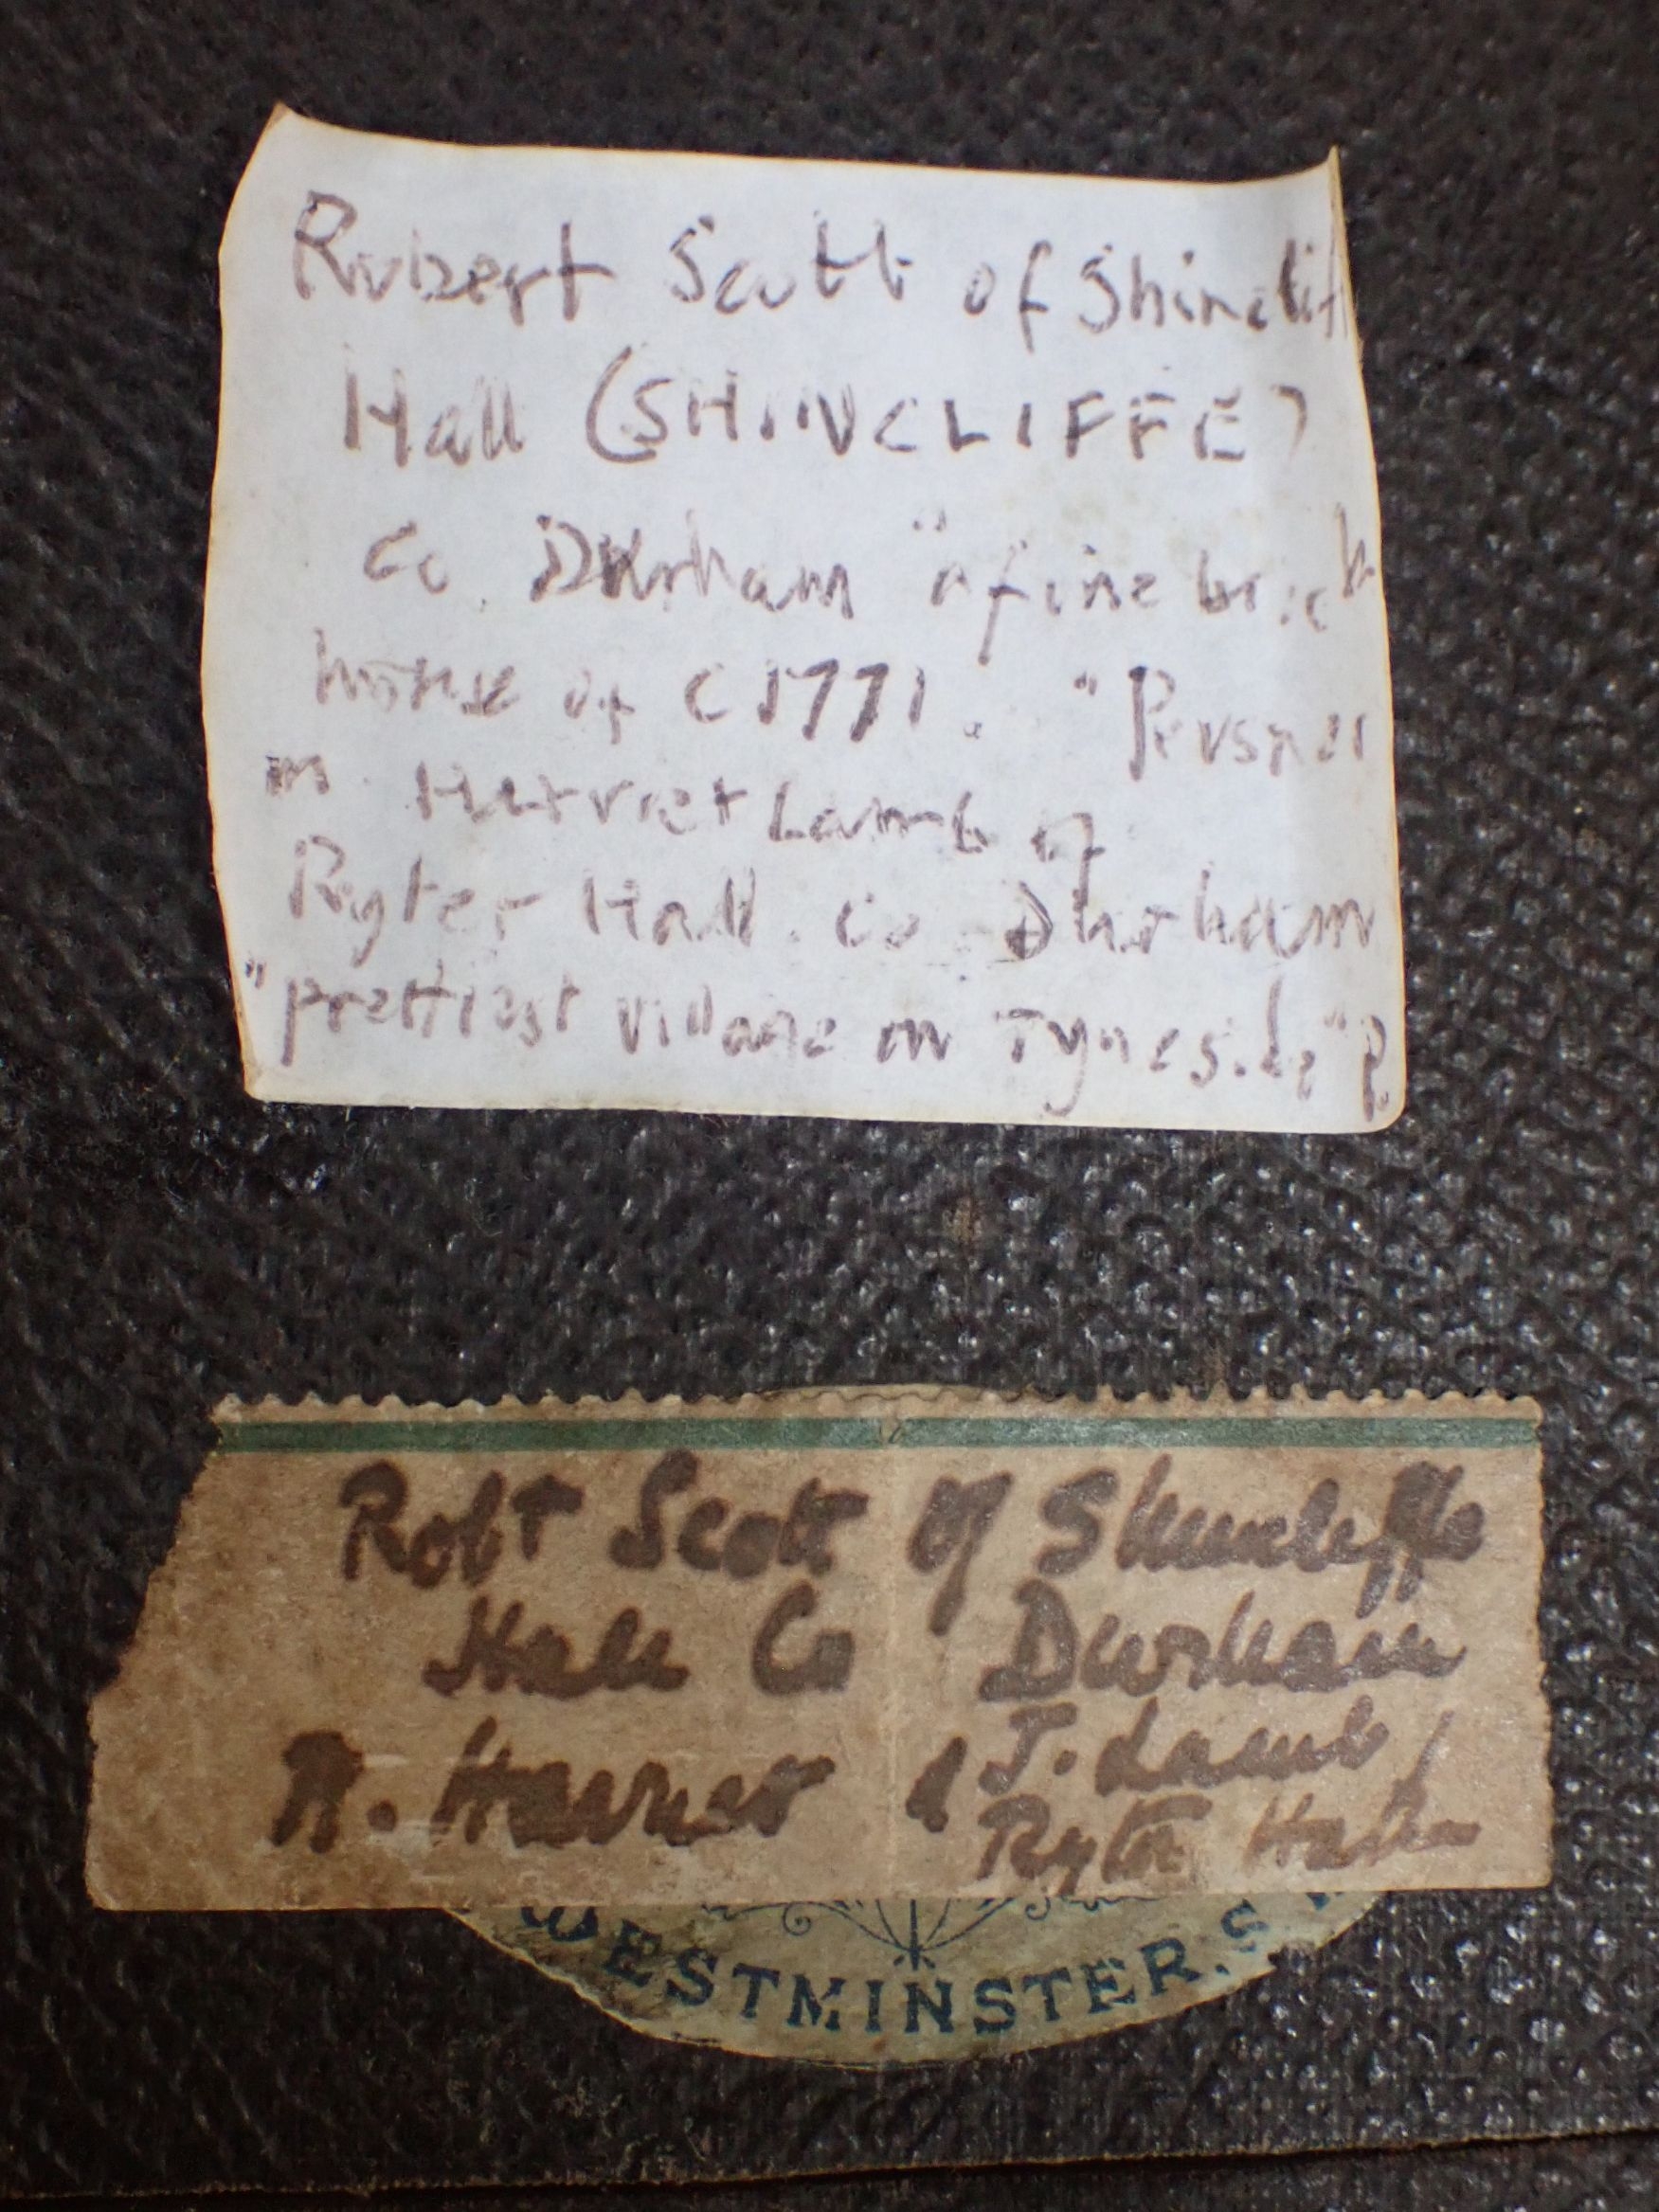 Robert Scott of Shinclif
Hall (SHINCLIFFE)
Co. Durham "a fine brick
house of C 1771. " Pevsner
m. Harriet Lamb of
Ryter Hall. Co. Durham
"prettiest village on Tyneside" P.
Robt Scott of Shincliffe
Hall Co Durham
J. Lamb
Ryton Hall
WESTMINSTER. S